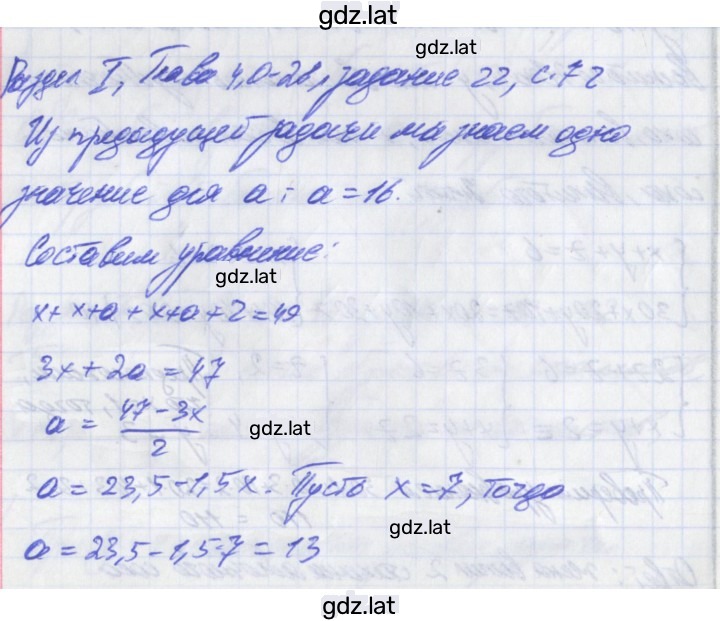 gdz.lat
gdz.lat
Раздел I, Глава 4,0-28, задание 22, с.72
Из предыдущей задачи мы знаем одно
значение для a: a = 16.
Составим уравнение:
gdz.lat
x + x+a + x+a + 2 = 49
3x + 2a = 47
a = \frac{47 - 3x}{2}
gdz.lat
a = 23,5 - 1,5x. Пусть x = 7, тогда
gdz.lat
a = 23,5 - 1,5·7 = 13
gdz.lat